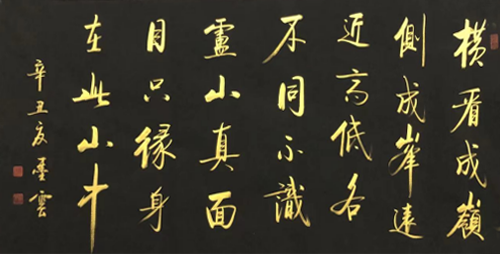 橫看成嶺
側成峯遠
近高低各
不同不識
盧山真面
目只緣身
在此山中
辛丑夏墨雲